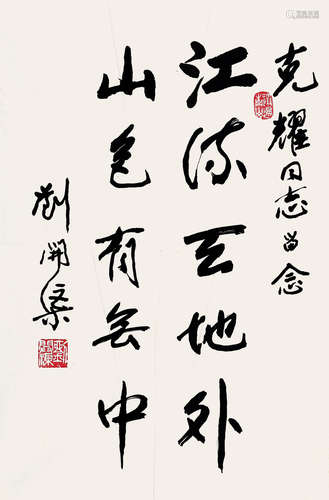 克耀同志留念
江流天地外
山色有無中
劉開渠